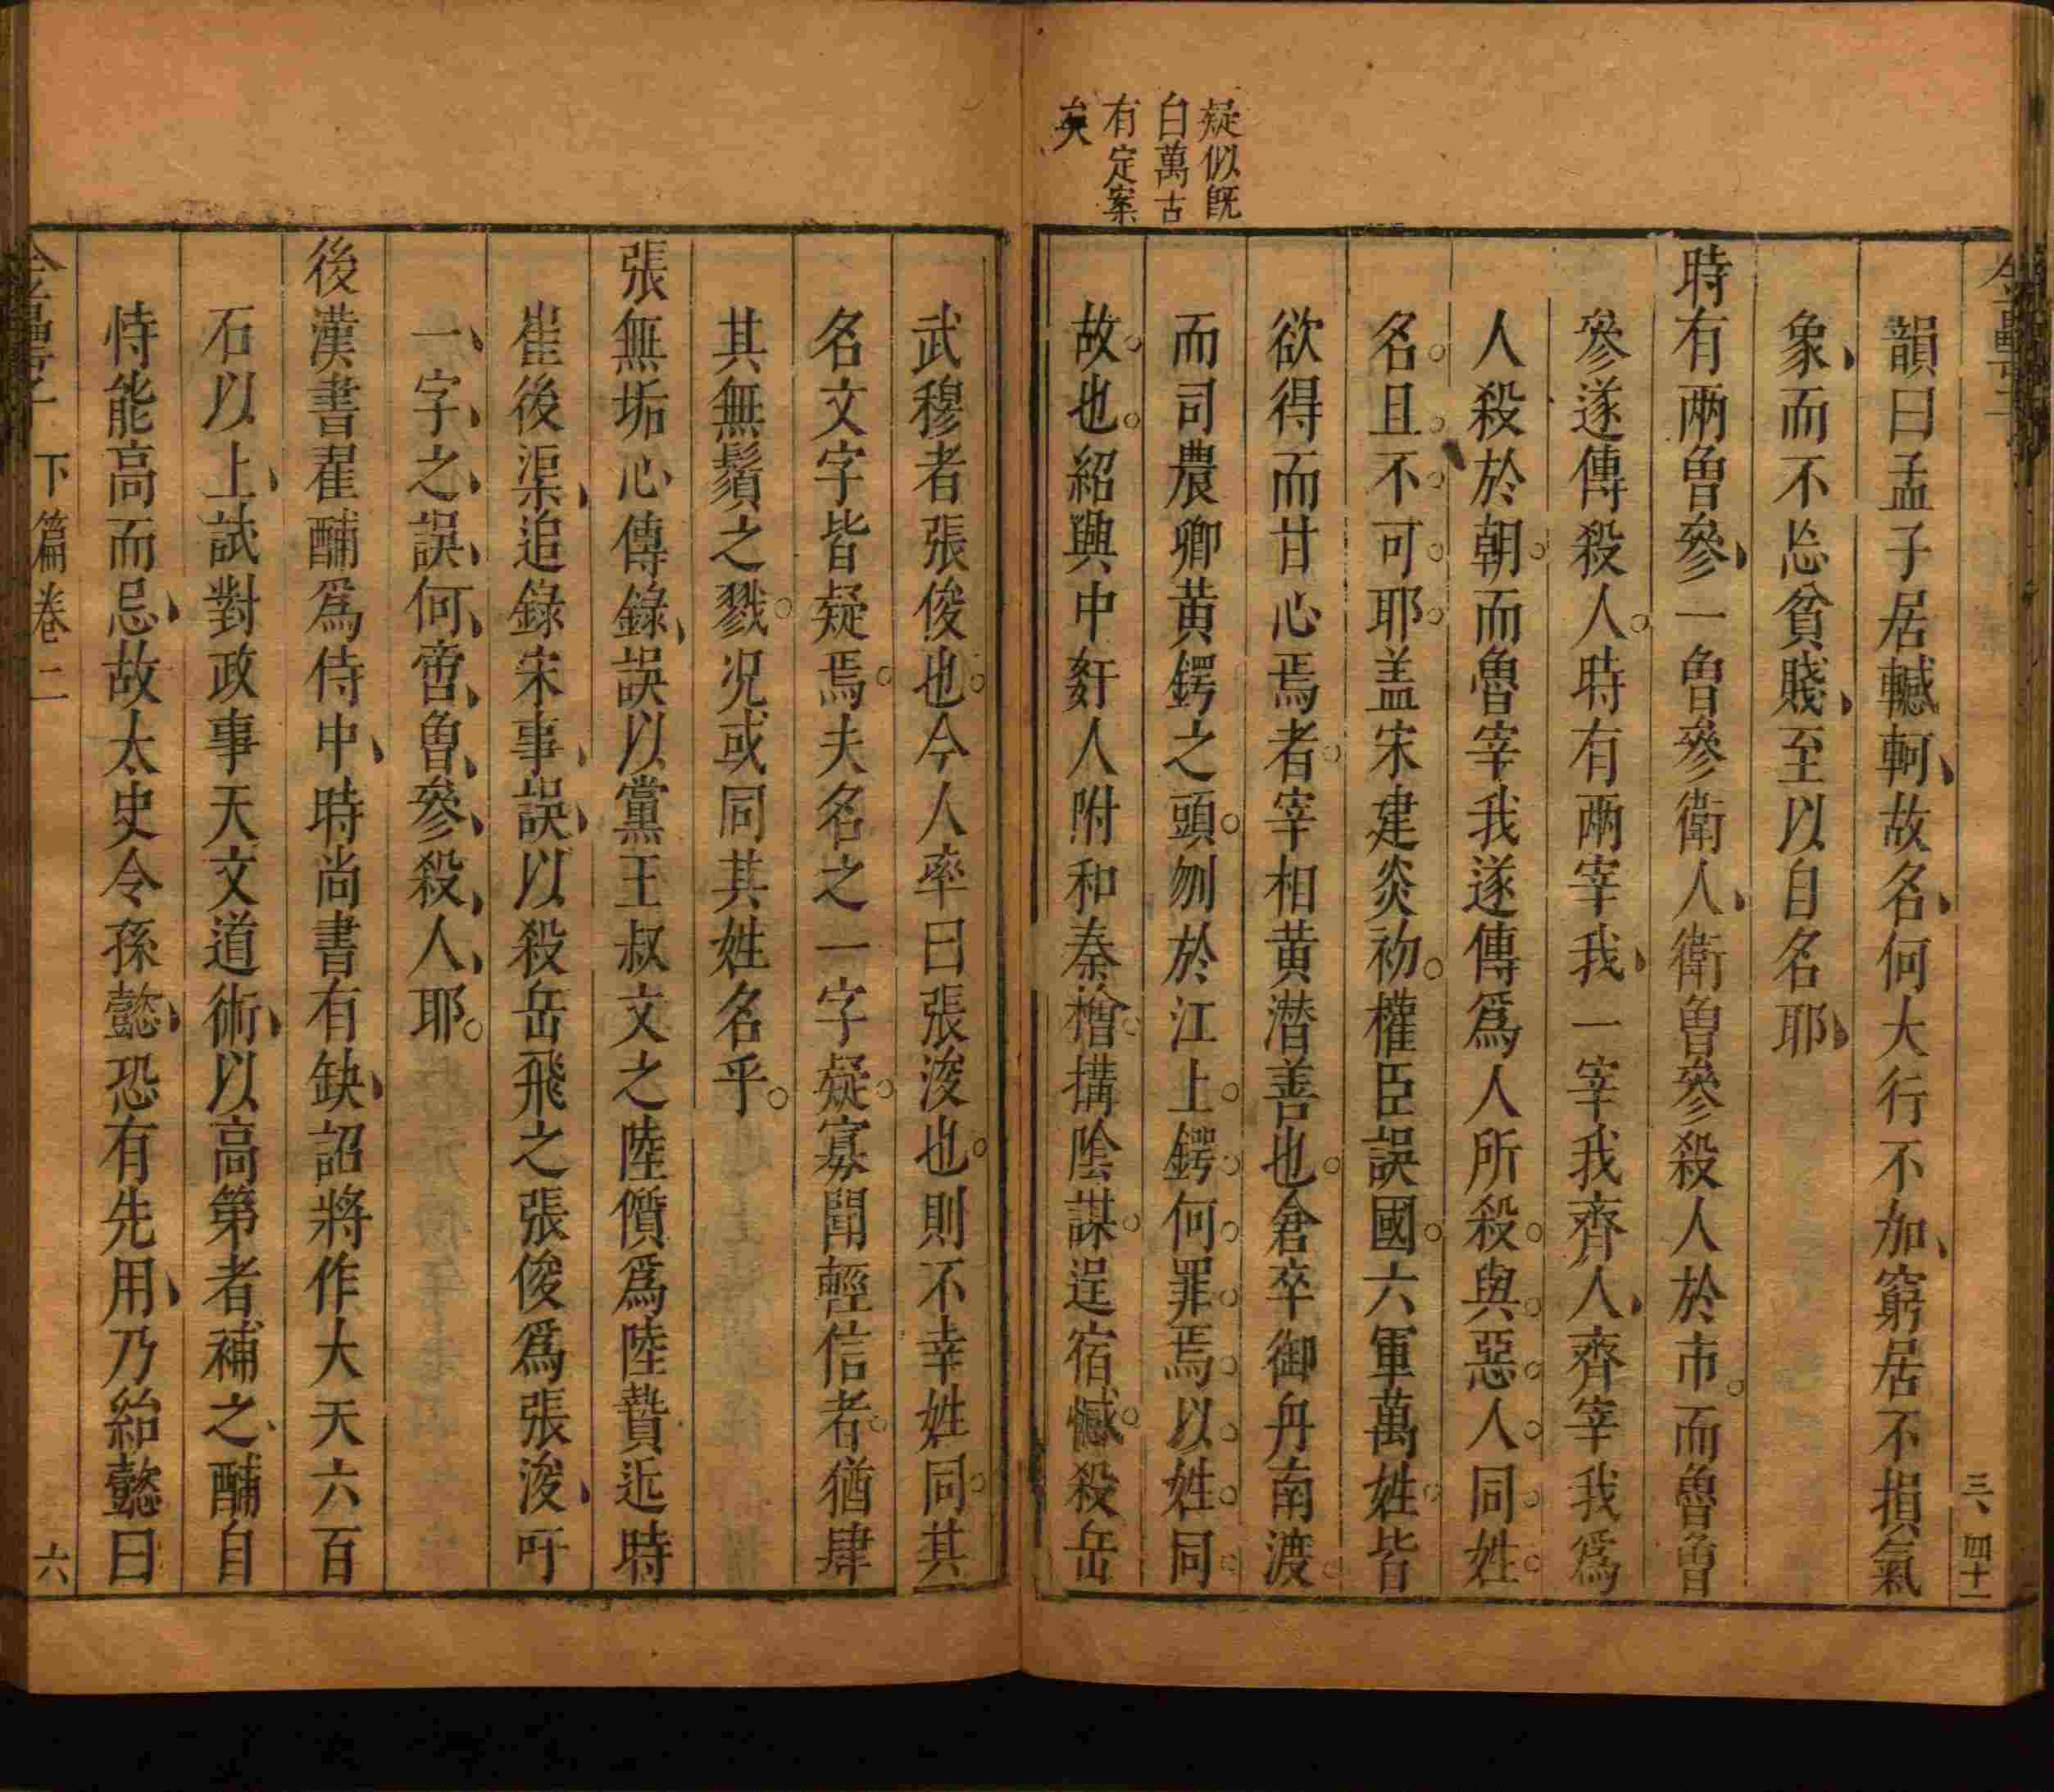 疑似旣
白萬古
有定案
矣
三、四十一
韻曰孟子居轗軻故名何大行不加窮居不損氣
象而不忘貧賤至以自名耶
時有兩曾參一魯參衛人衛曾參殺人於市而魯曾
參遂傳殺人時有兩宰我一宰我齊人齊宰我爲
人殺於朝而魯宰我遂傳爲人所殺與惡人同姓
名且不可耶盖宋建炎初權臣誤國六軍萬姓皆
欲得而甘心焉者宰相黃潜善也倉卒御舟南渡
而司農卿黃鍔之頭刎於江上鍔何罪焉以姓同
故也紹興中奸人附和秦檜搆陰謀逞宿憾殺岳
武穆者張俊也今人率曰張浚也則不幸姓同其
名文字皆疑焉夫名之一字疑寡聞輕信者猶肆
其無鬚之戮况或同其姓名乎
張無垢心傳錄誤以黨王叔文之陸質爲陸贄近時
崔後渠追錄宋事誤以殺岳飛之張俊爲張浚吁
一字之誤何啻魯參殺人耶
後漢書翟酺爲侍中時尚書有缺詔將作大夭六百
石以上試對政事天文道術以高第者補之酺自
恃能高而忌故太史令孫懿恐有先用乃紿懿曰
下篇卷二
六